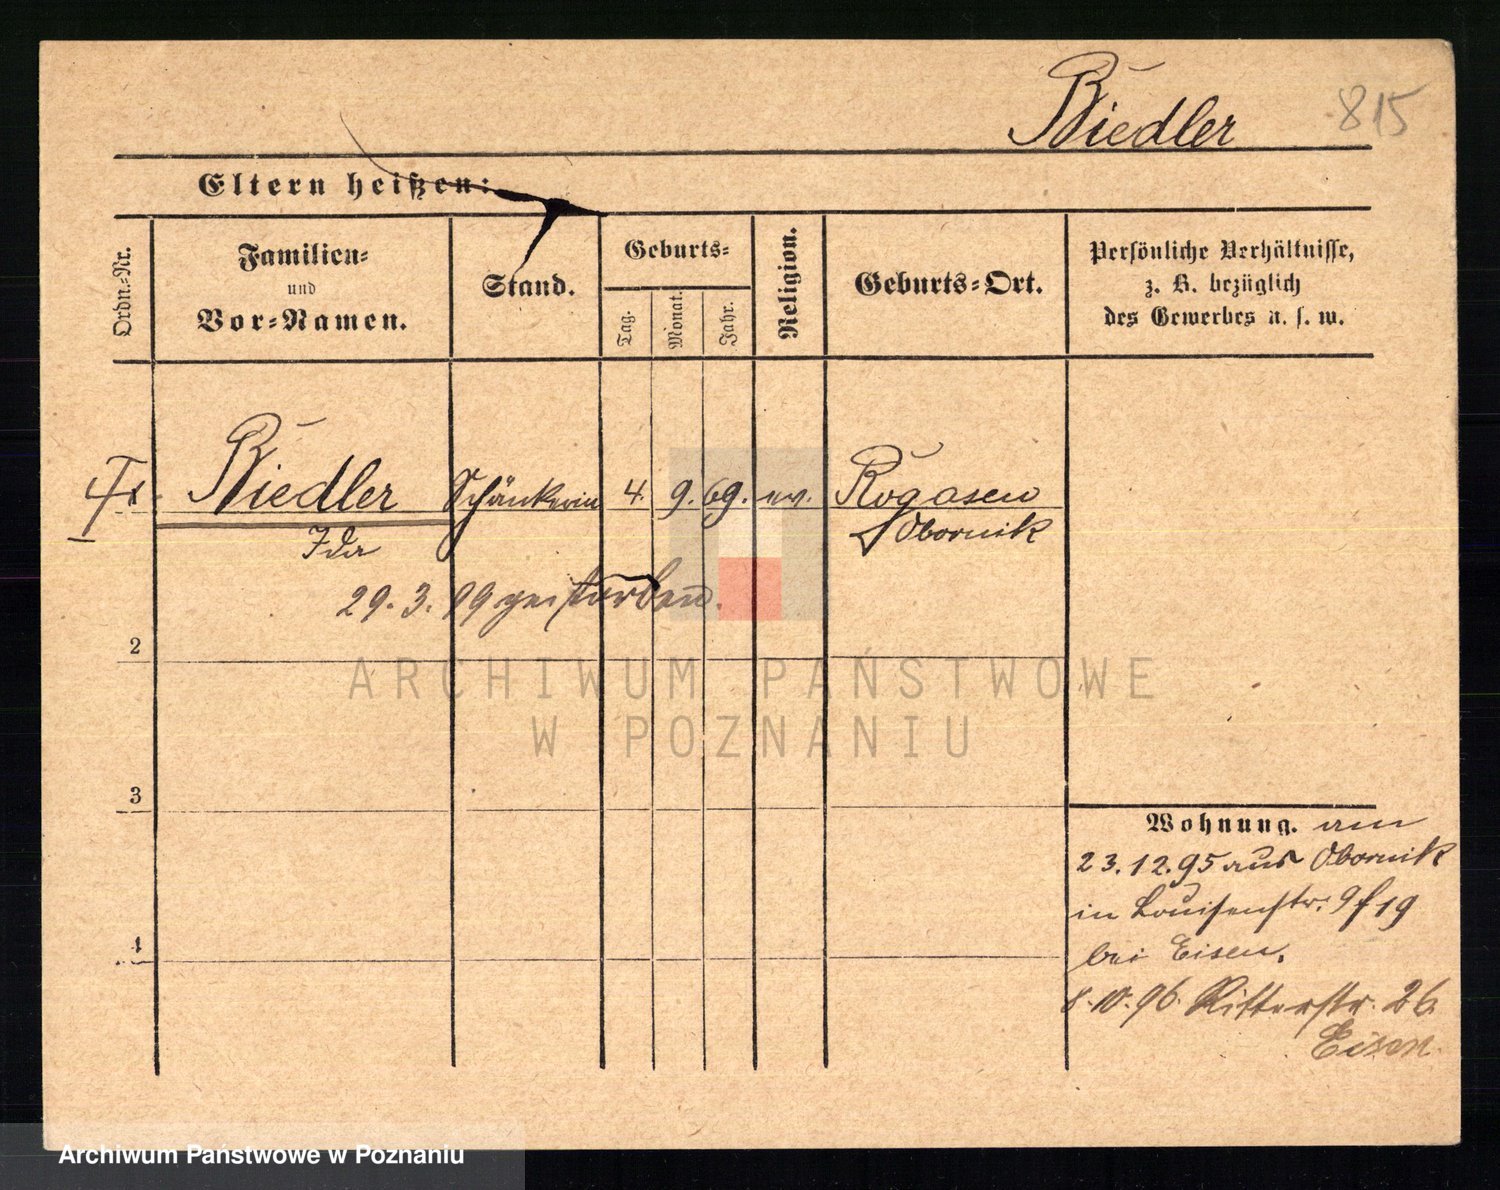 Riedler 815
Eltern heißen:
Ordn.-Nr.
Familien-
und
Vor-Namen.
Stand.
Geburts-
Tag.
Monat.
Jahr.
Religion.
Geburts-Ort.
Persönliche Verhältnisse,
z. B. bezüglich
des Gewerbes u. s. w.
Riedler Schänkerin 4. 9. 69. ev. Rogasen
Ida Obornik
29. 3. 99 gestorben.
2
ARCHIWUM PAŃSTWOWE
W POZNANIU
3
Wohnung. am
23.12.95 aus Obornik
in Louisenstr. 9f 19
4
bei Eisen.
8.10.96. Ritterstr. 26.
Eisen.
Archiwum Państwowe w Poznaniu